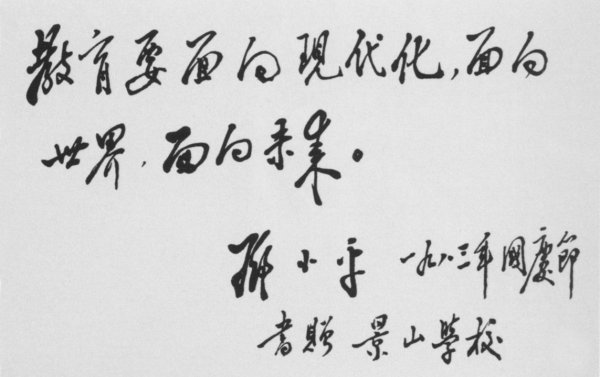 教育要面向現代化,面向
世界,面向未来。
邓小平 一九八三年國慶節
書贈 景山學校